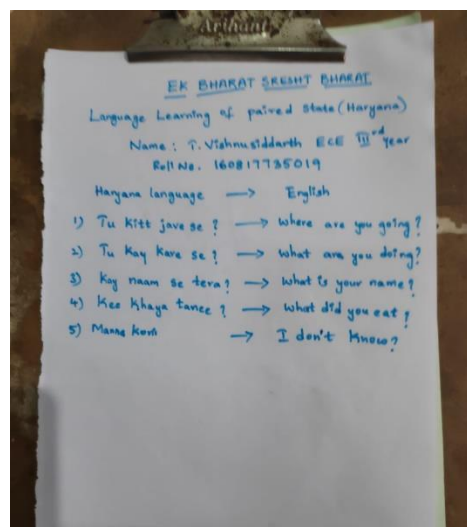 Arihant
EK BHARAT SRESHT BHARAT
Language Learning of paired state (Haryana)
Name : T. Vishnusiddarth ECE III rd year
Roll No. 160817735019
Haryana language → English
1) Tu Kitt jave se ? → Where are you going ?
2) Tu Kay Kare se ? → What are you doing?
3) Koy naam se tera ? → What is your name ?
4) Kee Khaya tanee ? → What did you eat ?
5) Manne Koni → I don't Know ?